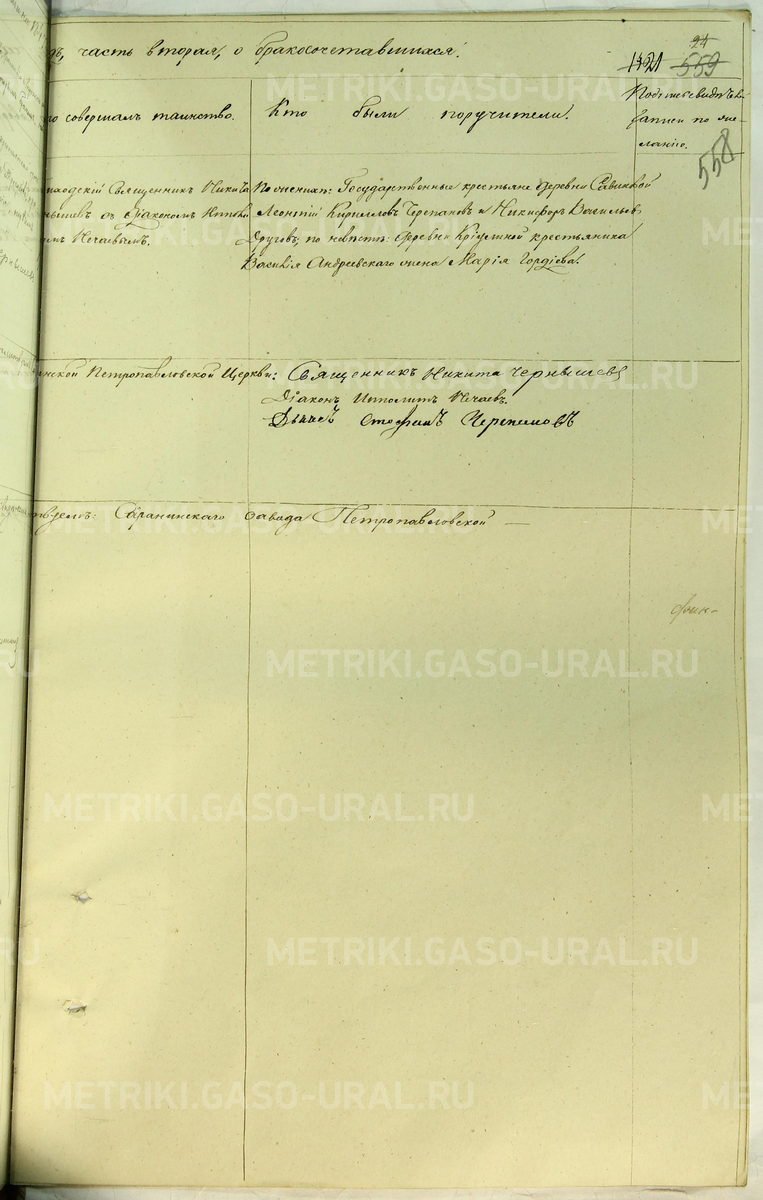 дъ, часть вторая, о бракосочетавшихся.
24
1121 559
558
го совершалъ таинство.
Кто были поручители.
записи по же-
ланію.
иходскій Священникъ Никита
нышевъ съ діакономъ Иппoли
омъ Нечаевымъ.
По женихѣ: Государственные крестьяне деревни Савиновой
Леонтій Кирилловъ Черепановъ и Никифоръ Васильевъ
Друговъ; по невѣстѣ: деревни Кріулиной крестьянина
Василія Андреевскаго жена Марія Гордіева.
инской Петропавловской Церкви: Священникъ Никита Чернышевъ
Діаконъ Ипполитъ Нечаевъ.
Стефанъ Черепановъ
Саранинскаго завода Петропавловской —
METRIKI.GASO-URAL.RU